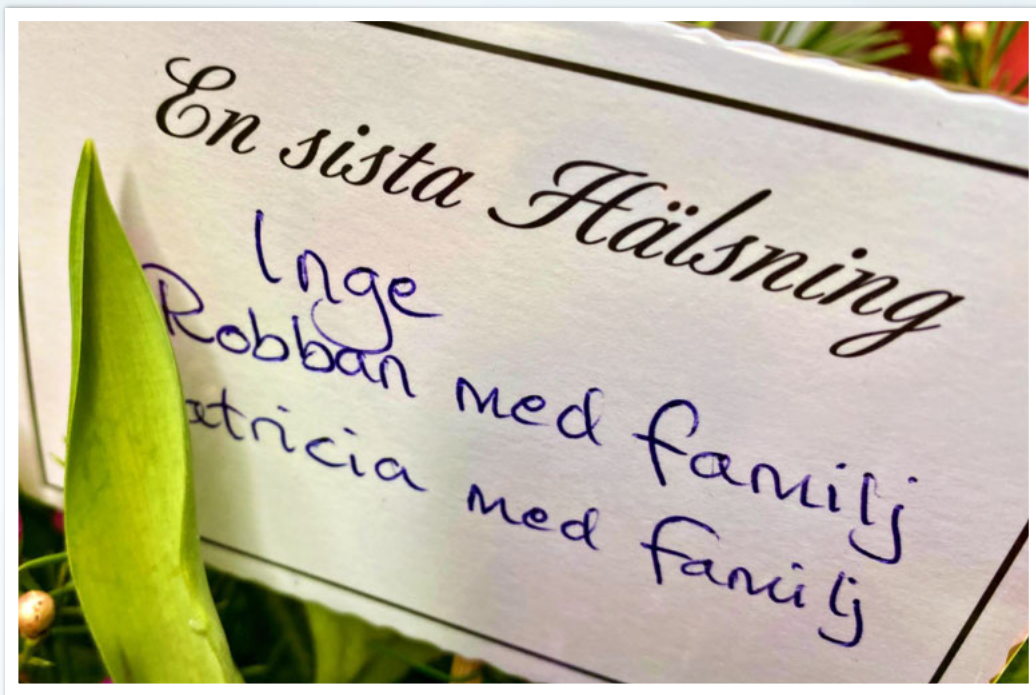 En sista Hälsning
Inge
Robban med familj
atricia med familj